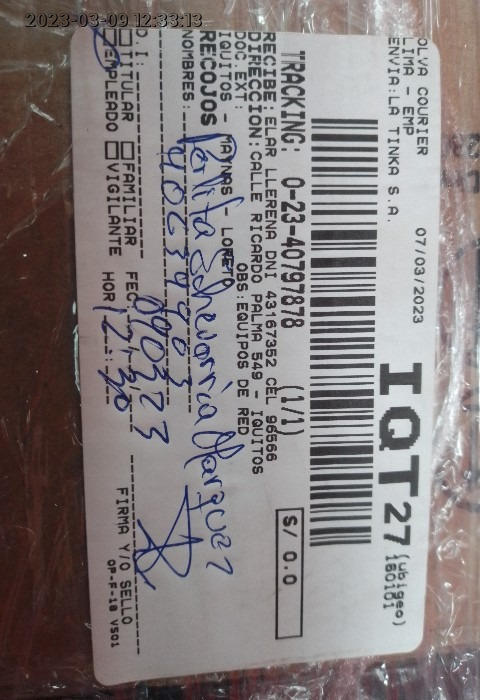 2023-03-09 12:33:13
OLVA COURIER 07/03/2023
LIMA - EMP
ENVIA:LA TINKA S.A.
IQT27 (ubigeo)
160101
TRACKING: 0-23-40797878 (1/1)
S/ 0.0
RECIBE: ELAR LLERENA DNI 43167352 CEL 96566
DIRECCION:CALLE RICARDO PALMA 549 - IQUITOS
DOC EXT: OBS:EQUIPOS DE RED
IQUITOS - MAYNAS - LORETO
RECOJOS
NOMBRES: Perlita Echevarria Marquez
D.I:
TITULAR FAMILIAR FEC: 090323
EMPLEADO VIGILANTE HOR: 12:30
FIRMA Y/O SELLO
OP-F-18 VS01